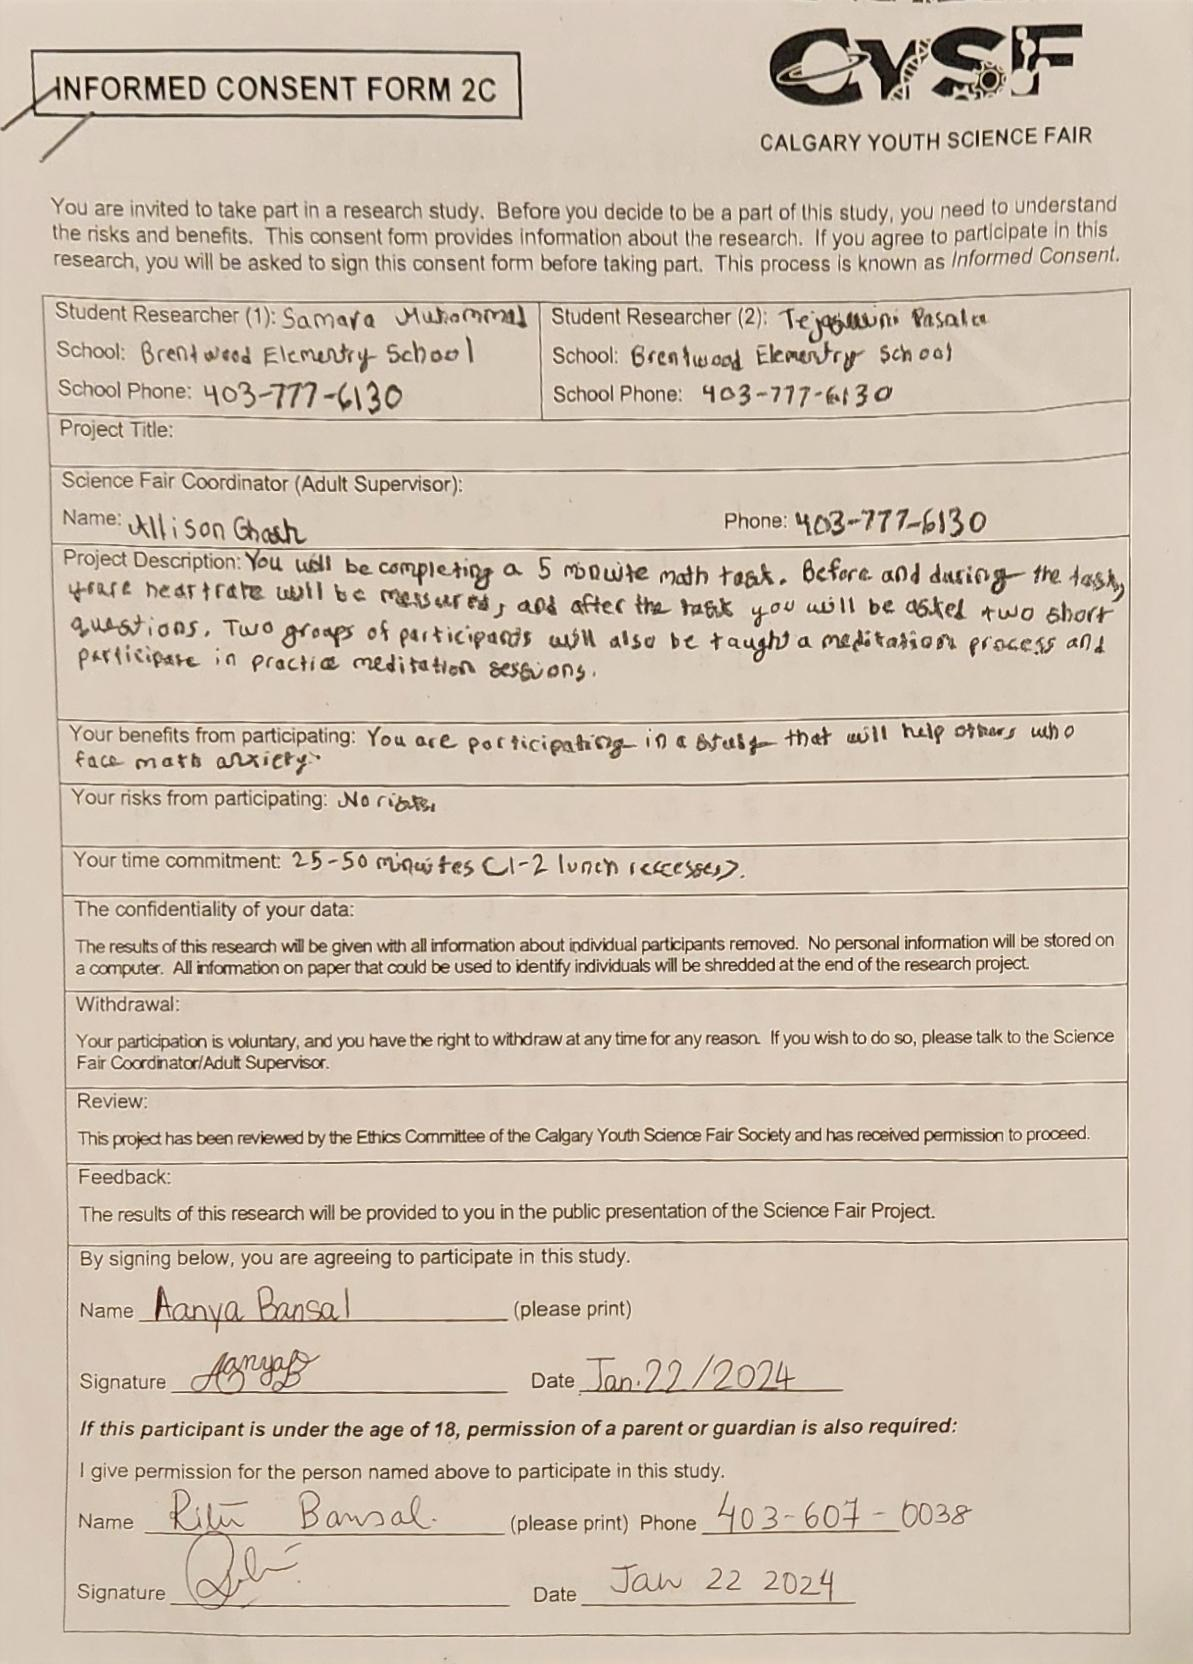 INFORMED CONSENT FORM 2C
CYSF
CALGARY YOUTH SCIENCE FAIR
You are invited to take part in a research study. Before you decide to be a part of this study, you need to understand
the risks and benefits. This consent form provides information about the research. If you agree to participate in this
research, you will be asked to sign this consent form before taking part. This process is known as Informed Consent.
Student Researcher (1): Samara
School: Brentwood Elementry School
School Phone: 403-777-6130
Student Researcher (2):
School: Brentwood Elementry School
School Phone: 403-777-6130
Project Title:
Science Fair Coordinator (Adult Supervisor):
Name: Allison
Phone: 403-777-6130
Project Description: You will be completing a 5 task. Before and during the task,
will be and after the task you will be asked two short
questions. Two groups of participants will also be taught a meditation process and
participate in meditation sessions.
Your benefits from participating: You are participating in a that will help others who
face math anxiety.
Your risks from participating: No
Your time commitment: 25-50 minutes (1-2 lunch
The confidentiality of your data:
The results of this research will be given with all information about individual participants removed. No personal information will be stored on
a computer. All information on paper that could be used to identify individuals will be shredded at the end of the research project.
Withdrawal:
Your participation is voluntary, and you have the right to withdraw at any time for any reason. If you wish to do so, please talk to the Science
Fair Coordinator/Adult Supervisor.
Review:
This project has been reviewed by the Ethics Committee of the Calgary Youth Science Fair Society and has received permission to proceed.
Feedback:
The results of this research will be provided to you in the public presentation of the Science Fair Project.
By signing below, you are agreeing to participate in this study.
Name Aanya Bansal (please print)
Signature Date Jan.22/2024
If this participant is under the age of 18, permission of a parent or guardian is also required:
I give permission for the person named above to participate in this study.
Name Bansal. (please print) Phone 403-607-0038
Signature Date Jan 22 2024